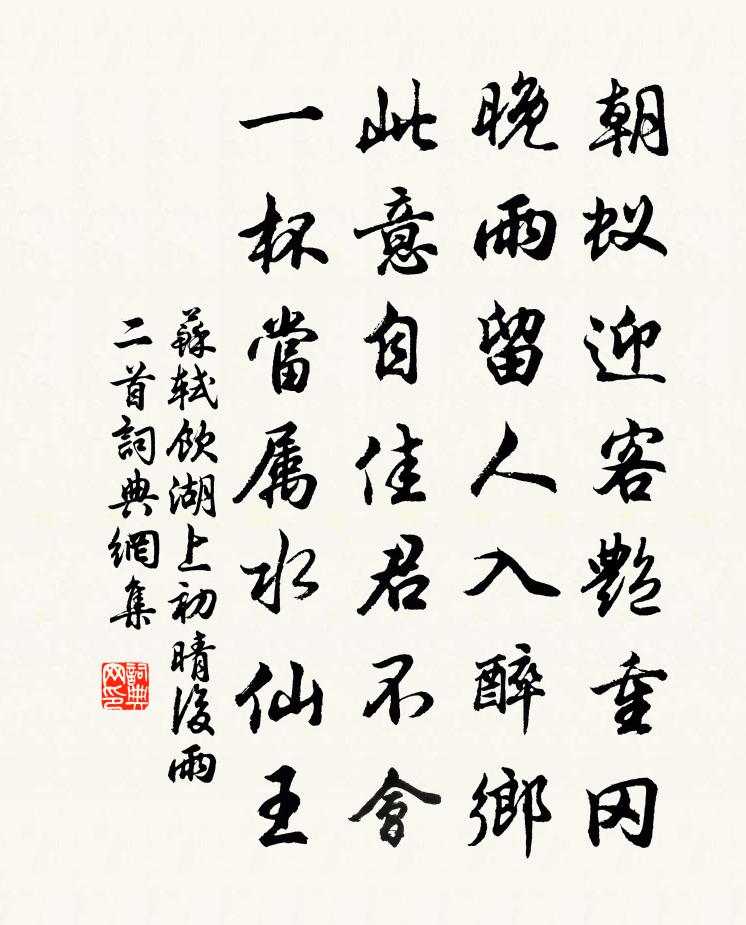 朝蚁迎客艷重冈
晚雨留人入醉鄉
此意自佳君不會
一杯當属水仙王
蘇軾飲湖上初晴後雨
二首詞典網集
詞典
网印